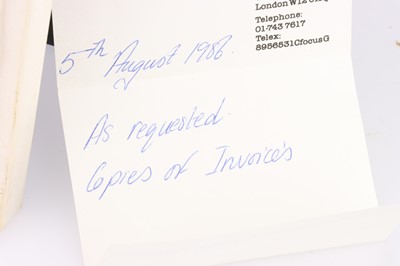 London W12
Telephone:
01-743 7617
Telex:
8956531CfocusG
5th August 1986.
As requested.
Copies of Invoice's